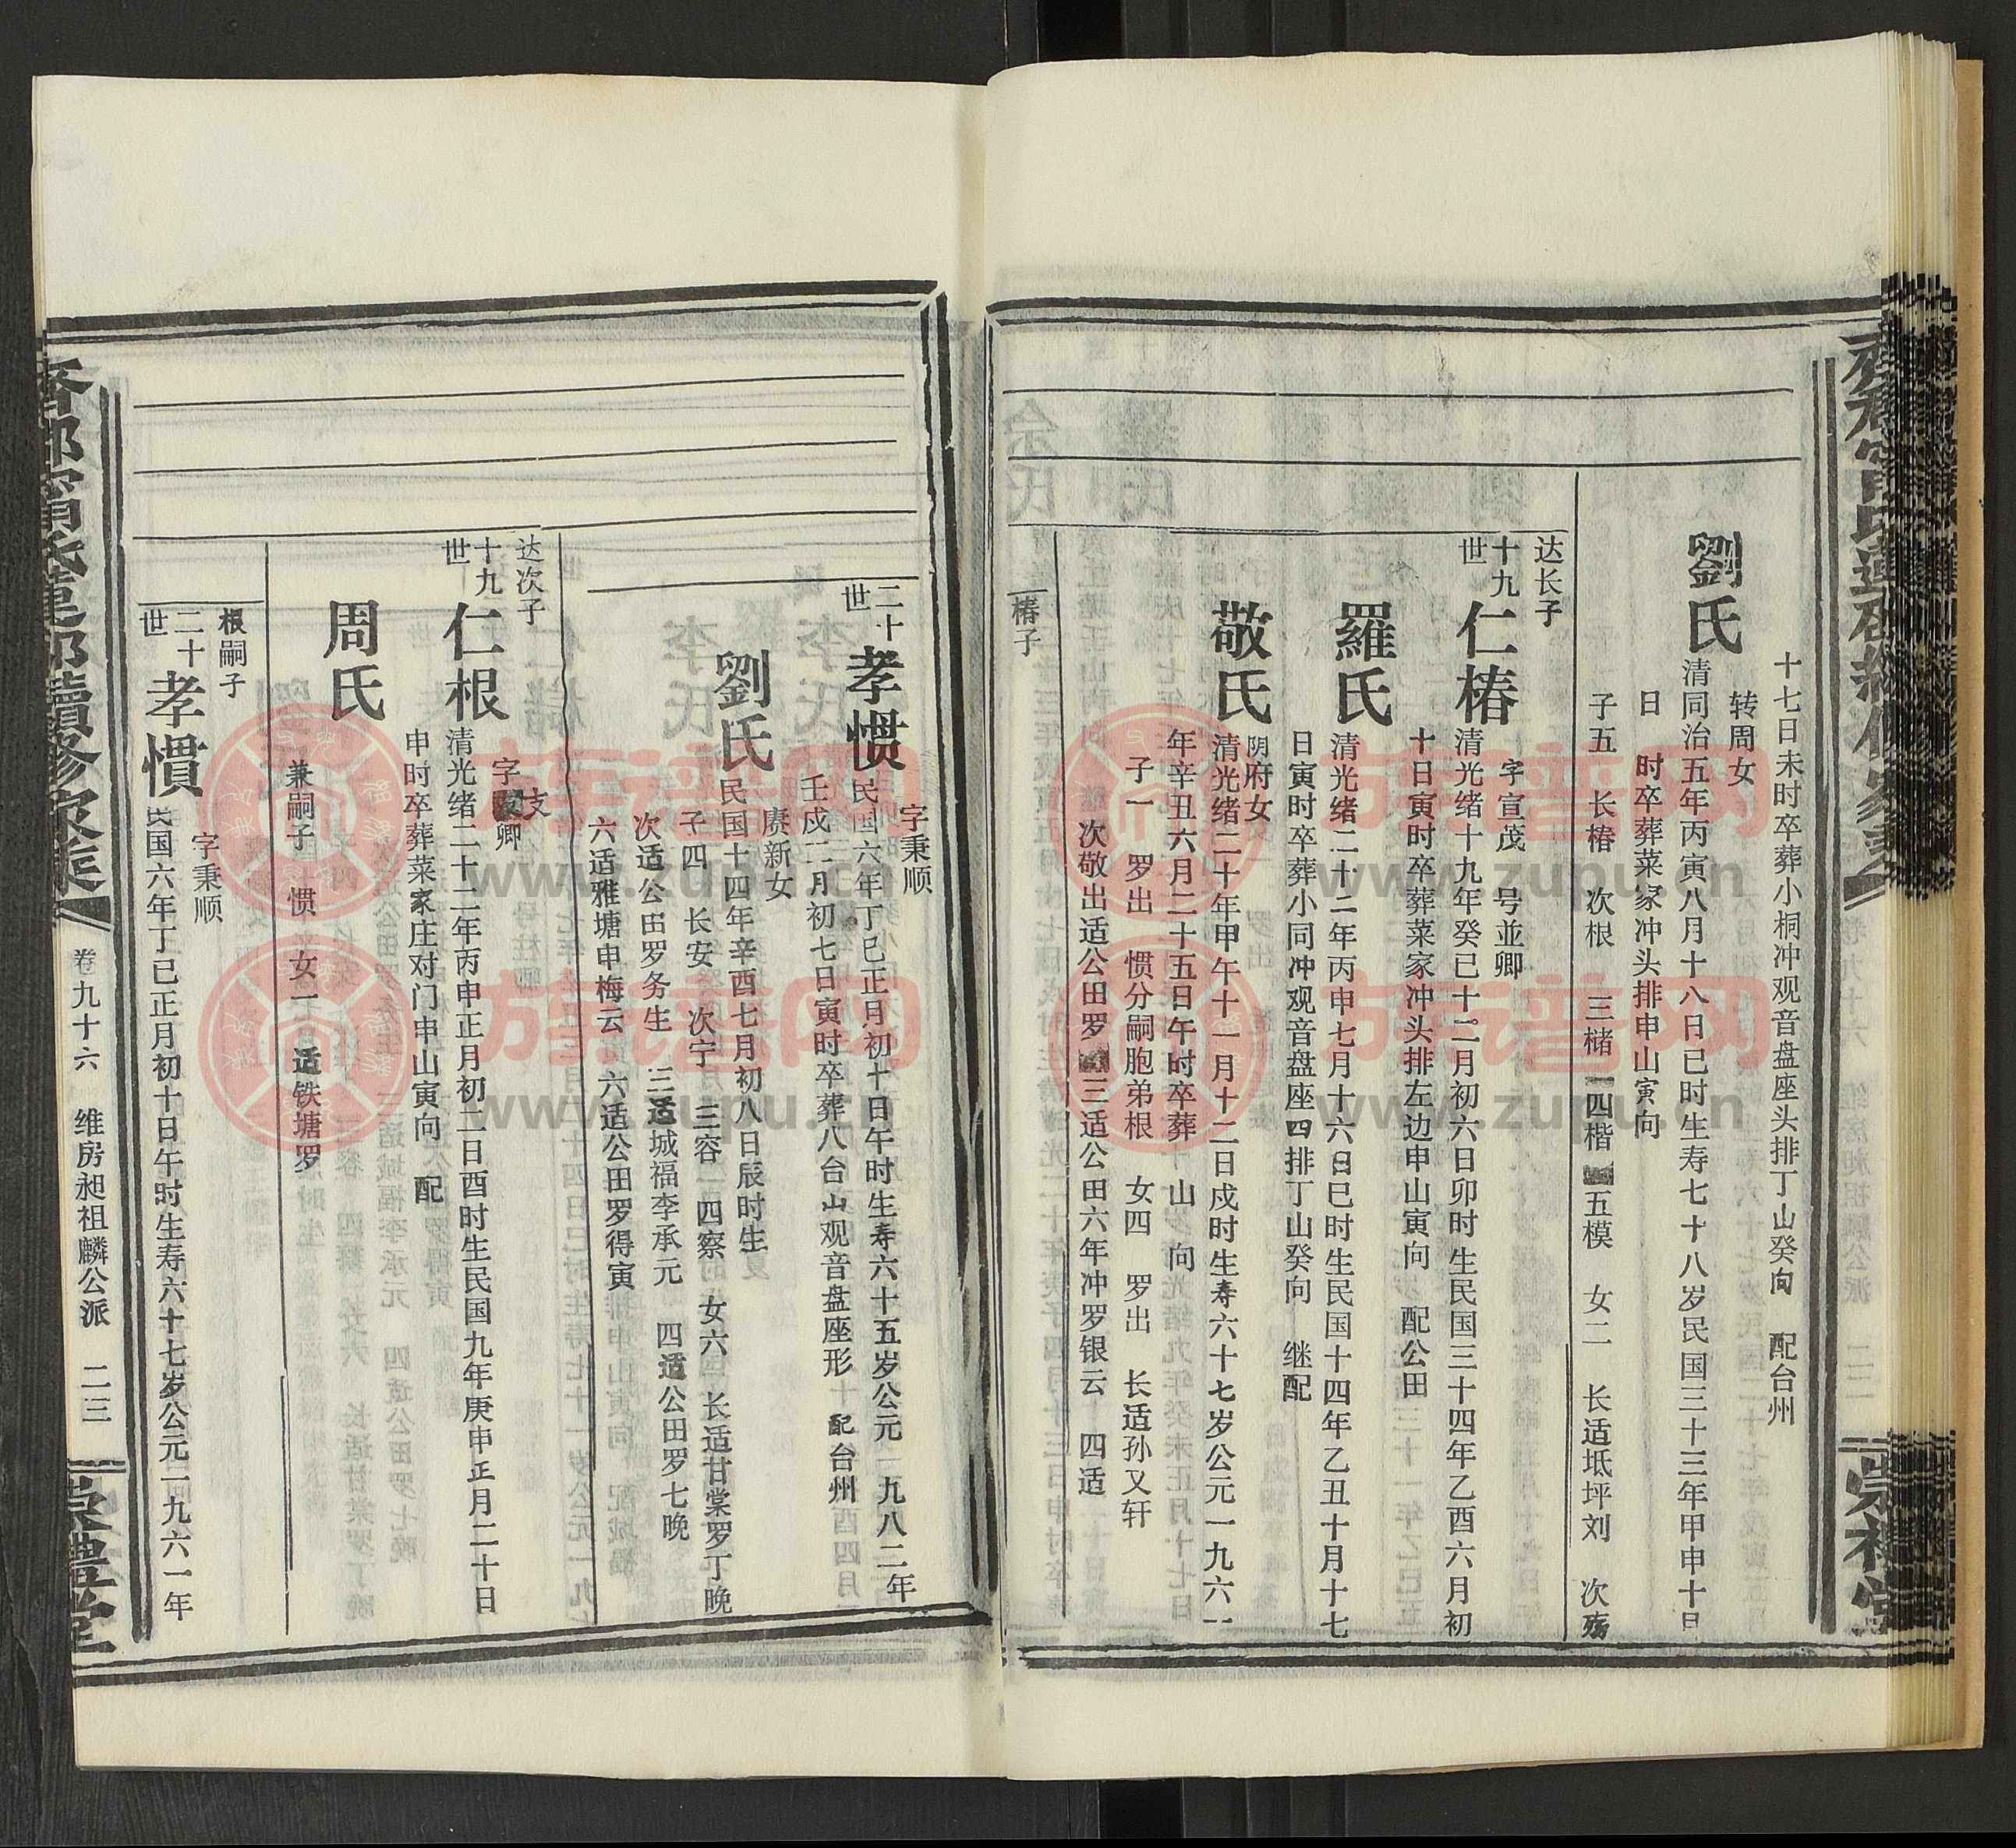 十七日未时卒葬小桐冲观音盘座头排丁山癸向 配台州
转周女
劉氏 清同治五年丙寅八月十八日已时生寿七十八岁民国三十三年甲申十月
日 时卒葬菜家冲头排申山寅向
子五 长椿 次根 三槠 四楷 五模 女二 长适坻坪刘 次殇
达长子
十九世 仁椿 字宣茂 号並卿
清光绪十九年癸已十二月初六日卯时生民国三十四年乙酉六月初
十日寅时卒葬菜家冲头排左边申山寅向 配公田
羅氏 清光绪二十二年丙申七月十六日巳时生民国十四年乙丑十月十七
日寅时卒葬小同冲观音盘座四排丁山癸向 继配
阴府女
敬氏 清光绪二十年甲午十一月十二日戍时生寿六十七岁公元一九六一
年辛丑六月二十五日午时卒葬 山 向
子一 罗出 惯分嗣胞弟根 女四 罗出 长适孙又轩
次敬出适公田罗 三适公田六年冲罗银云 四适
椿子
二十世 孝惯 字秉顺
民国六年丁巳正月初十日午时生寿六十五岁公元一九八二年
壬戍二月初七日寅时卒葬八台山观音盘座形 配台州
赓新女
劉氏 民国十四年辛酉七月初八日辰时生
子四 长安 次宁 三容 四察 女六 长适甘棠罗丁晚
次适公田罗务生 三适城福李承元 四适公田罗七晚
六适雅塘申梅云 六适公田罗得寅
达次子
十九世 仁根 字支卿
清光绪二十二年丙申正月初二日酉时生民国九年庚申正月二十日
申时卒葬菜家庄对门申山寅向 配
周氏
兼嗣子 惯 女一 适铁塘罗
根嗣子
二十世 孝慣 字秉顺
民国六年丁已正月初十日午时生寿六十七岁公元一九六一年
卷九十六 维房昶祖麟公派 二三
族谱网
www.zupu.cn
族谱网
www.zupu.cn
族谱网
www.zupu.cn
族谱网
www.zupu.cn